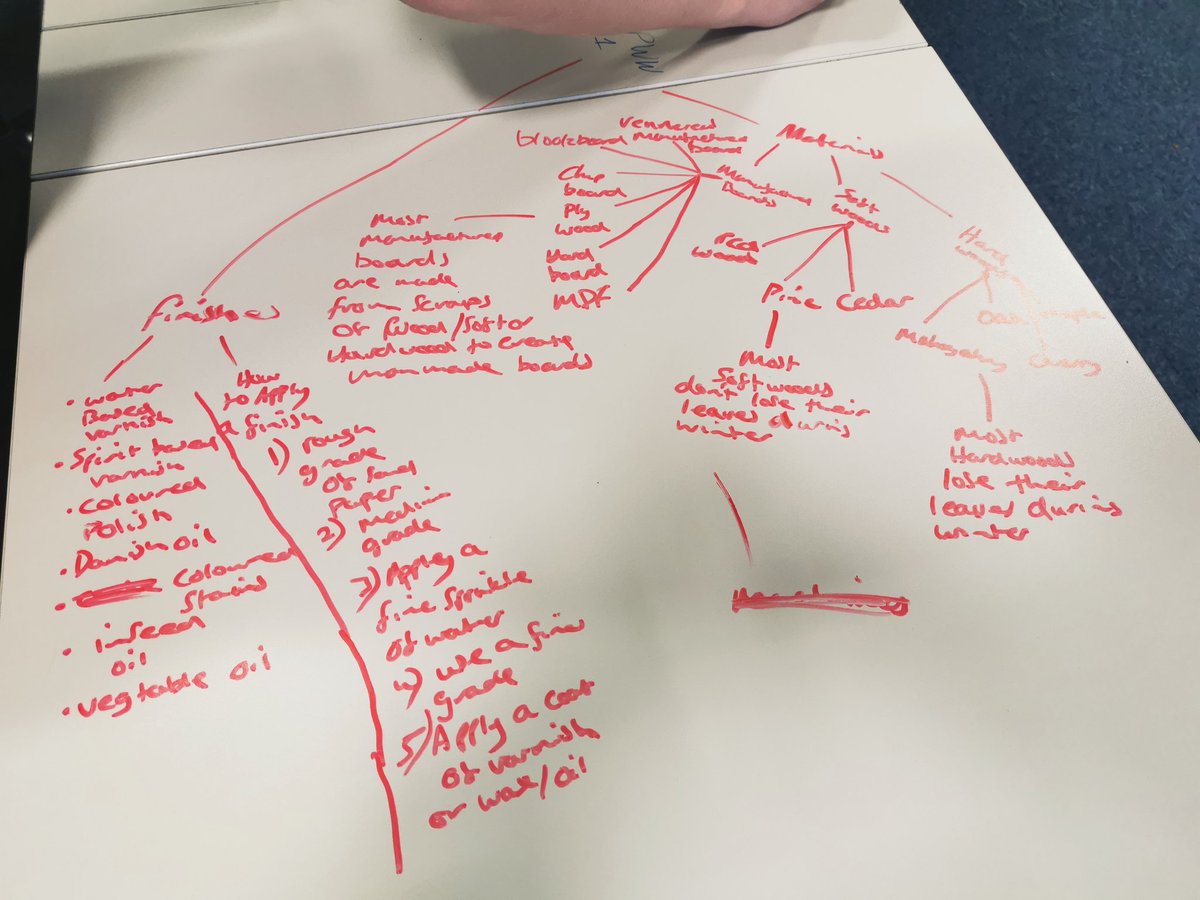 PWW
1
Materials
Manufactured
Boards
Veneered
Manufactured
board
blockboard
Chip
board
Ply
wood
Hard
board
MDF
Most
Manufactured
boards
are made
from scraps
of wood/soft or
Hardwood to create
man made boards
Soft
woods
wood
Pine
Cedar
Most
Softwoods
don't lose their
leaves during
winter
Hard
woods
Mahogany
Oak
maple
Cherry
Most
Hardwoods
lose their
leaves during
winter
finishes
• water
Based
varnish
• Spirit based
varnish
• coloured
Polish
• Danish oil
• coloured
Stains
• linseed
oil
• vegtable oil
How
to Apply
a finish
1) rough
grade
of sand
paper
2) medium
grade
3) Apply a
fine sprinkle
of water
4) use a finer
grade
5) Apply a coat
of varnish
or wax/oil